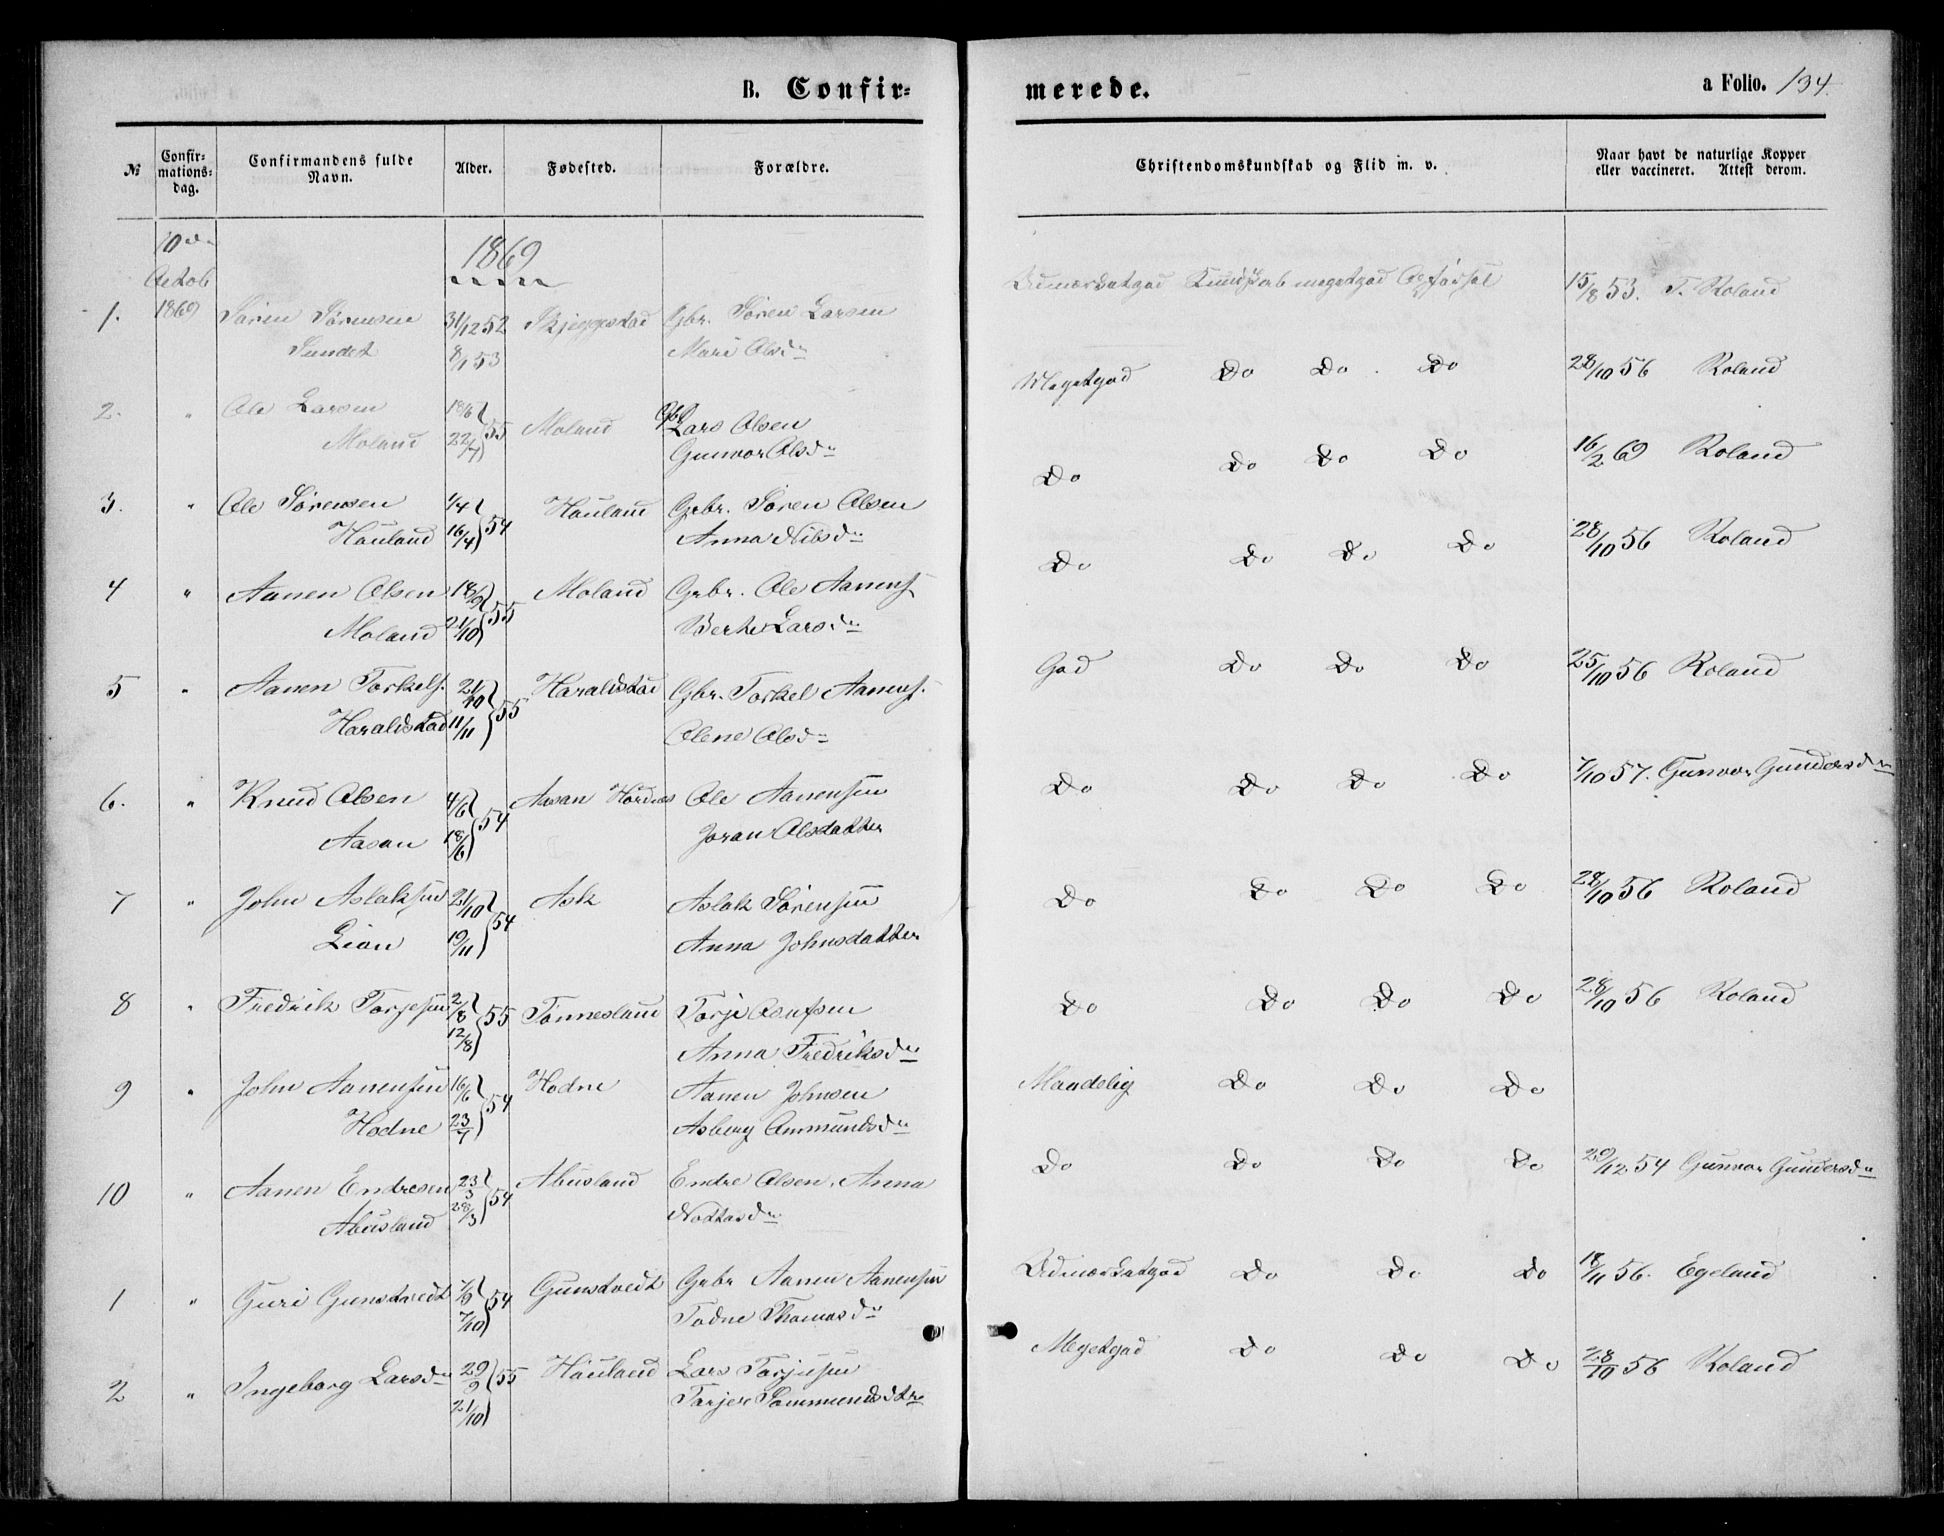 B. Confir=
merede.
a Folio. 134.
№
Confir=
mations=
dag.
Confirmandens fulde
Navn.
Alder.
Fødested.
Forældre.
Christendomskundskab og Flid m. v.
Naar havt de naturlige Kopper
eller vaccineret. Attest derom.
10de
Octob
1869
1869
1. Søren Sørensen 31/12 52 Skjeggestad Gbr. Søren Larsen
Sundet 8/1 53 Mari Olsdr
Udmærketgod Kundskab megetgod Opførsel 15/8 53. T. Roland
2. " Ole Larsen 18/6 Moland Gbr Lars Olsen
Moland 22/7 55 Gunvor Olsdr
Megetgod Do Do Do 28/10 56 Roland
3. " Ole Sørensen 1/4 Hauland Grbr. Søren Olsen
Hauland 16/4 54 Anna Nilsdr
Do Do Do Do 16/2 69 Roland
4 " Aanen Olsen 18/9 Moland Grbr. Ole Aanens.
Moland 21/10 55 Berthe Larsdr
Do Do Do Do 28/10 56 Roland
5 " Aanen Torkels. 21/10 Haraldstad Gbr. Torkel Aanens.
Haraldstad 11/11 55 Olene Olsdr
God Do Do Do 25/10 56 Roland
6. " Knud Olsen 4/6 Aasan Hordnes Ole Aanensen
Aasan 18/6 54 Joran Olsdatter
Do Do Do Do 7/10 57. Gunvor Gundersdr
7 " John Aslaksen 21/10 Ask Aslak Sørensen
Lian 19/11 54 Anna Johnsdatter
Do Do Do Do 28/10 56 Roland
8 " Fredrik Torjesen 2/8 Tønnesland Torje Osufsen
12/8 55 Anna Fredriksdr
Do Do Do Do 28/10 56 Roland
9 " John Aanensen 16/6 Hodne Aanen Johnsen
Hodne 23/7 54 Asberg Ommundsdr
Maadelig Do Do Do
10 " Aanen Endresen 23/3 Abusland Endre Olsen, Anna
Abusland 28/3 54 Nottasdr
Do Do Do Do 29/12 54 Gunvor Gundersdr
1 " Guri Gunstvedt 1/9 Gunstvedt Grbr Aanen Aanensen
7/10 54 Todne Thomasdr
Udmærketgod Do Do Do 18/11 56. Egeland
2 " Ingeborg Larsdr 29/9 55 Hauland Lars Torjusen
21/10 Torjer Sommundsdtr
Megetgod Do Do Do 28/10 56 Roland